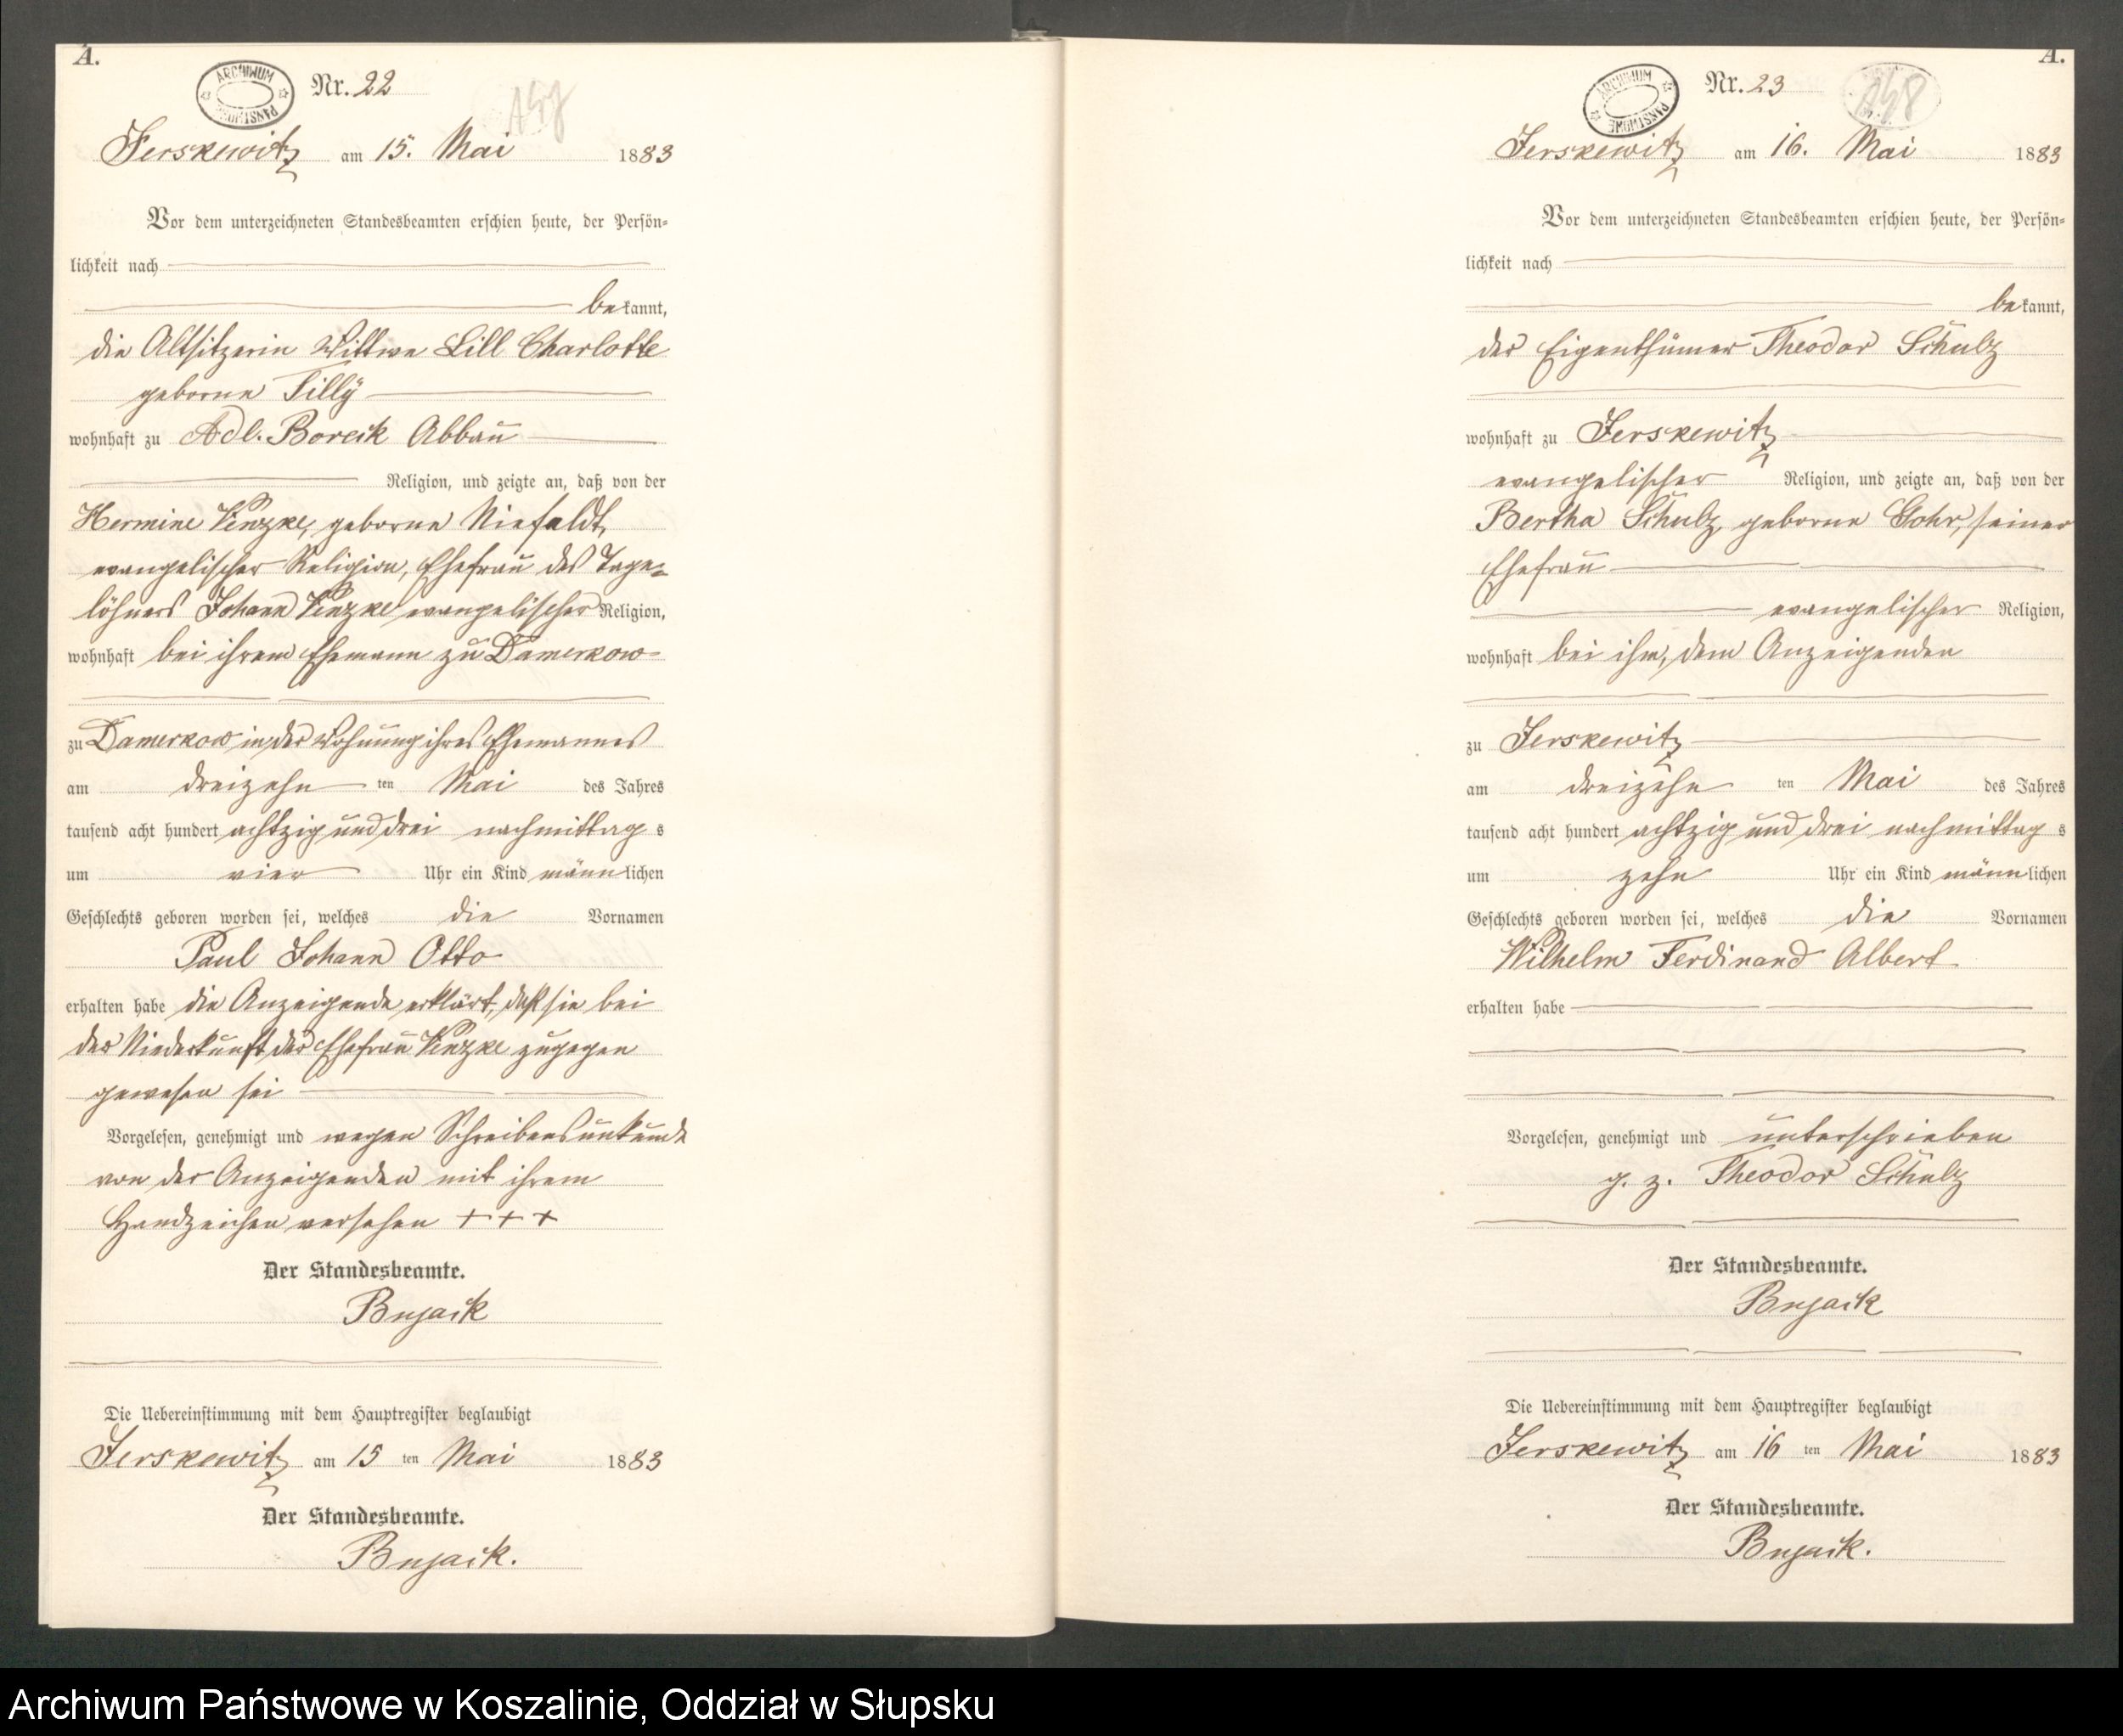 A.
ARCHIWUM PAŃSTWOWE
Nr. 22
157
Jerskewitz am 15. Mai 1883
Vor dem unterzeichneten Standesbeamten erschien heute, der Persön-
lichkeit nach
bekannt,
die Altsitzerin Wittwe Lill Charlotte
geborne Tilly
wohnhaft zu Adl. Borcik Abbau
Religion, und zeigte an, daß von der
Hermine Venzke, geborne Niefaldt,
evangelischer Religion, Ehefrau des Tage-
löhners Johann Venzke evangelischer Religion,
wohnhaft bei ihrem Ehemann zu Damerkow
zu Damerkow in der Wohnung ihres Ehemannes
am dreizehn ten Mai des Jahres
tausend acht hundert achtzig und drei nachmittag s
um vier Uhr ein Kind männlichen
Geschlechts geboren worden sei, welches die Vornamen
Paul Johann Otto
erhalten habe die Anzeigende erklärt, daß sie bei
der Niederkunft der Ehefrau Venzke zugegen
gewesen sei
Vorgelesen, genehmigt und wegen Schreibensunkunde
von der Anzeigenden mit ihrem
Handzeichen versehen + + +
Der Standesbeamte.
Bujack
Die Uebereinstimmung mit dem Hauptregister beglaubigt
Jerskewitz am 15 ten Mai 1883
Der Standesbeamte.
Bujack.
A.
ARCHIWUM PAŃSTWOWE
Nr. 23
158
Jerskewitz am 16. Mai 1883
Vor dem unterzeichneten Standesbeamten erschien heute, der Persön-
lichkeit nach
bekannt,
der Eigenthümer Theodor Schulz
wohnhaft zu Jerskewitz
evangelischer Religion, und zeigte an, daß von der
Bertha Schulz, geborne Gohr, seiner
Ehefrau
evangelischer Religion,
wohnhaft bei ihm, dem Anzeigenden
zu Jerskewitz
am dreizehn ten Mai des Jahres
tausend acht hundert achtzig und drei nachmittag s
um zehn Uhr ein Kind männlichen
Geschlechts geboren worden sei, welches die Vornamen
Wilhelm Ferdinand Albert
erhalten habe
Vorgelesen, genehmigt und unterschrieben
g. z. Theodor Schulz
Der Standesbeamte.
Bujack
Die Uebereinstimmung mit dem Hauptregister beglaubigt
Jerskewitz am 16 ten Mai 1883
Der Standesbeamte.
Bujack.
Archiwum Państwowe w Koszalinie, Oddział w Słupsku